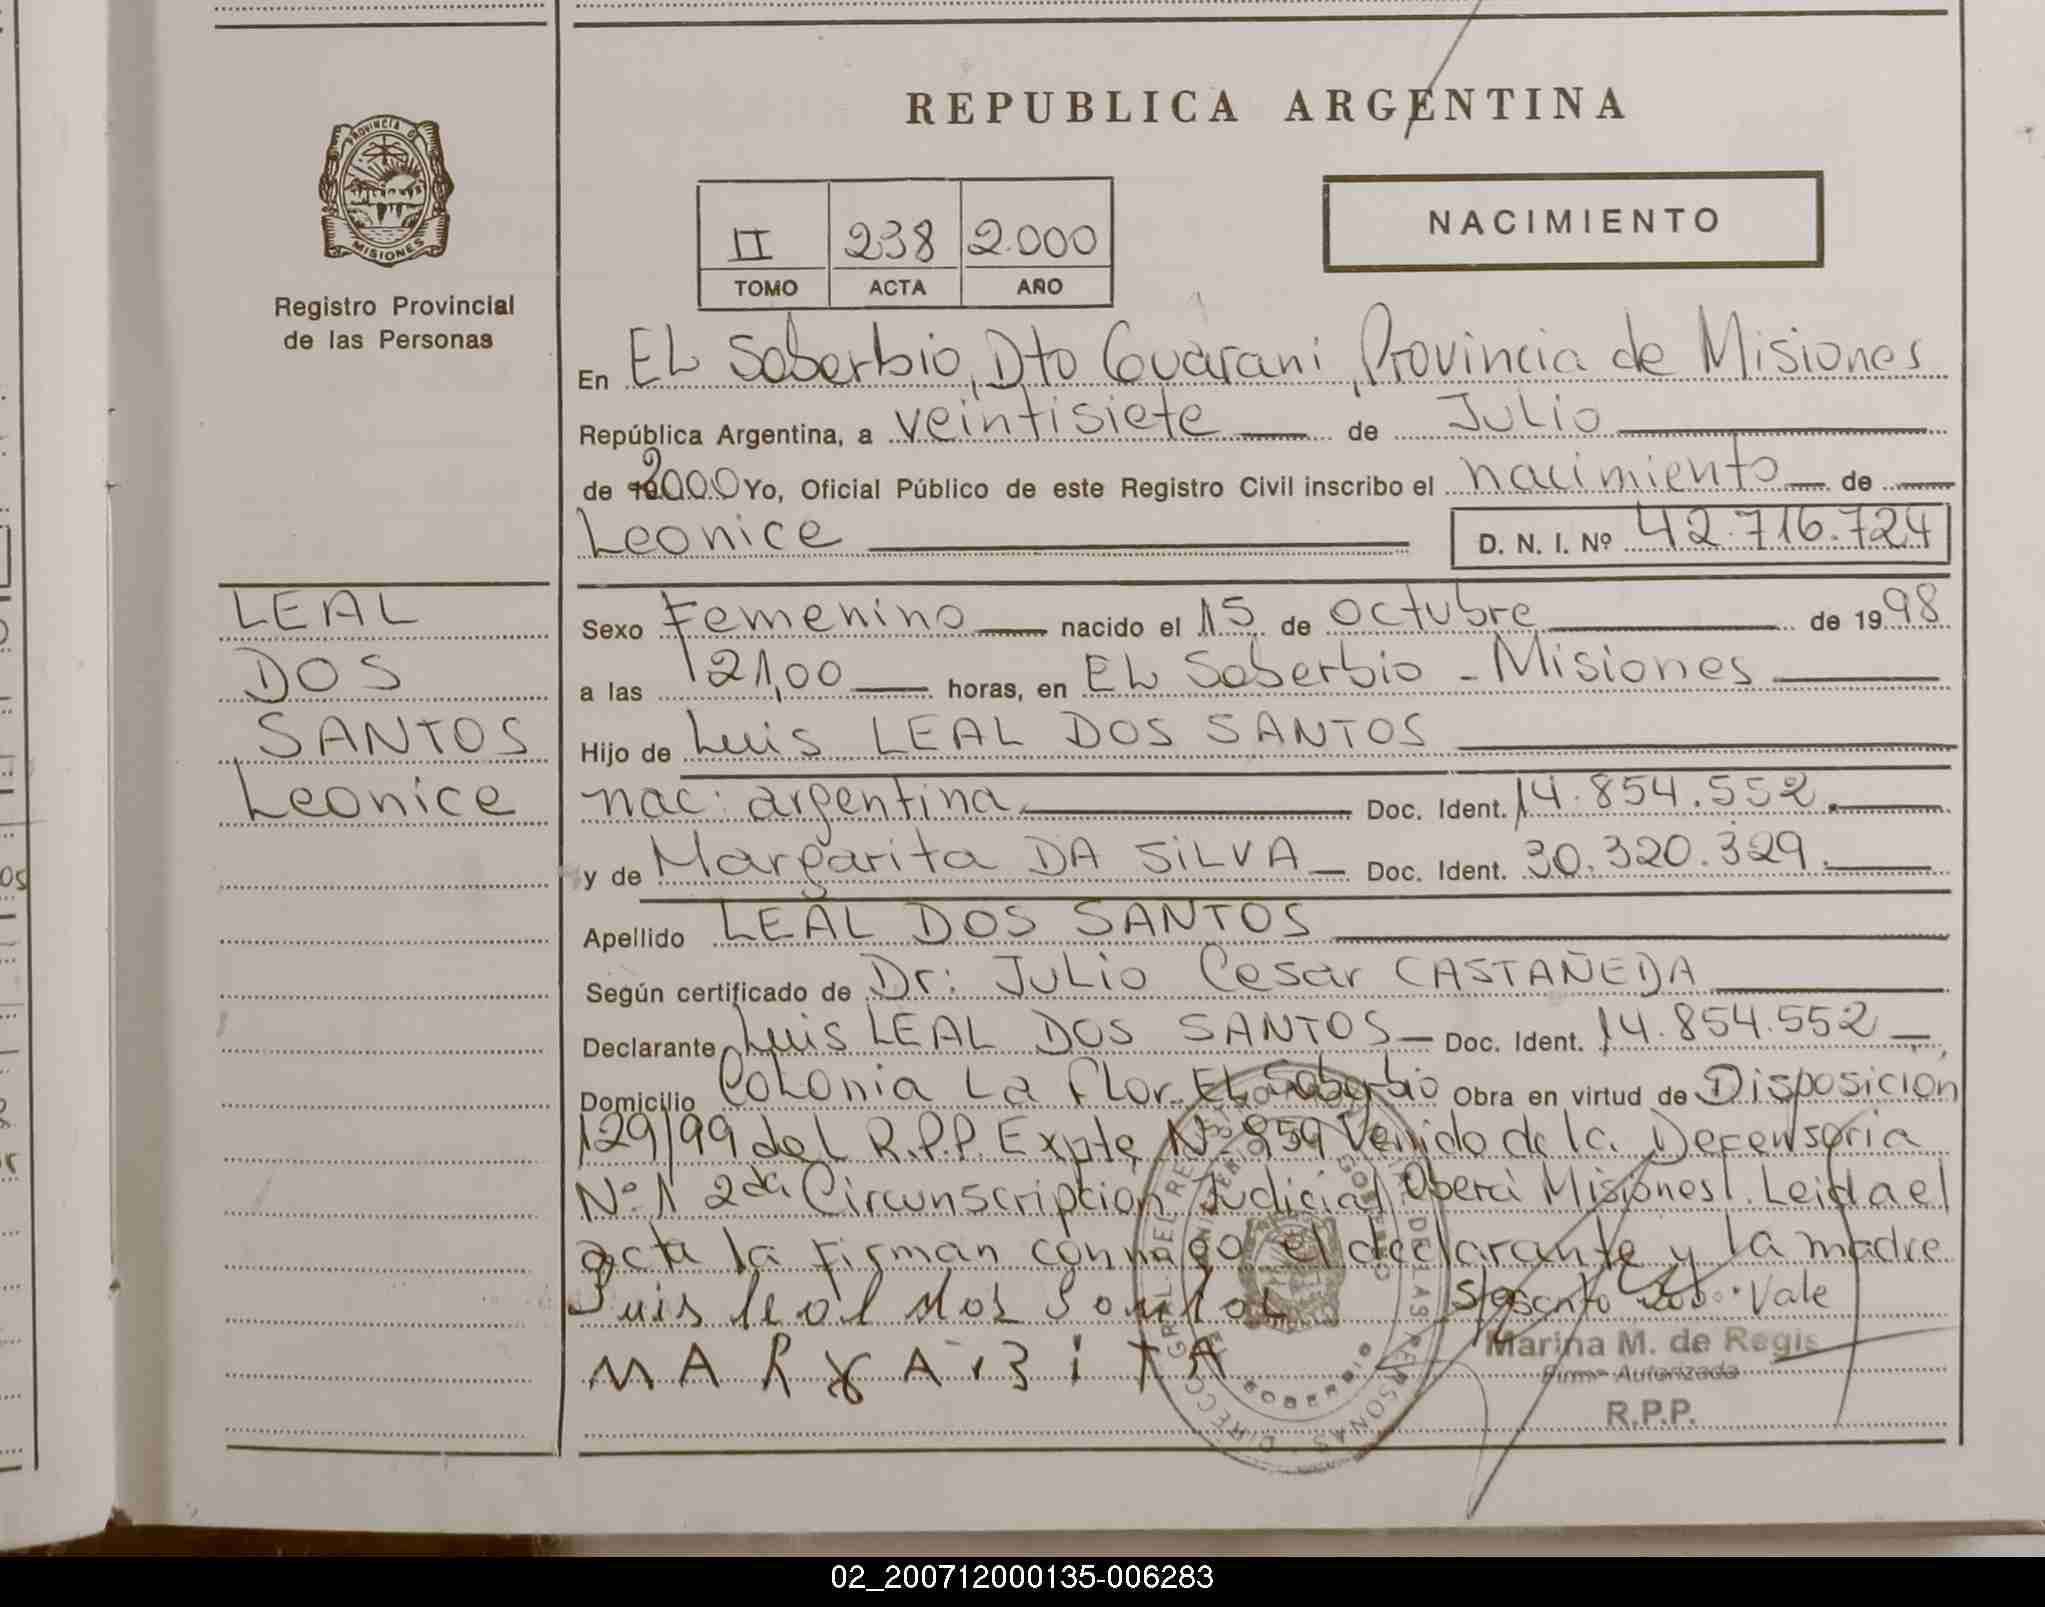 REPUBLICA ARGENTINA
PROVINCIA D
MISIONES
Registro Provincial
de las Personas
II 238 2.000
TOMO ACTA AÑO
NACIMIENTO
En EL Soberbio, Dto Guarani, Provincia de Misiones
República Argentina, a veintisiete de JULIO
de 2000 Yo, Oficial Público de este Registro Civil inscribo el nacimiento de
Leonice D. N. I. Nº 42.716.724
LEAL
DOS
SANTOS
Leonice
Sexo Femenino nacido el 15 de octubre de 1998
a las 21,00 horas, en EL Soberbio - Misiones
Hijo de Luis LEAL DOS SANTOS
nac: argentina Doc. Ident. 14.854.552.
y de Margarita DA SILVA Doc. Ident. 30.320.329.
Apellido LEAL DOS SANTOS
Según certificado de Dr: JULIO Cesar CASTAÑEDA
Declarante Luis LEAL DOS SANTOS Doc. Ident. 14.854.552
Domicilio Colonia La Flor. EL Soberbio Obra en virtud de Disposicion
129/99 del R.P.P. Expte Nº 859 Venido de la Defensoria
Nº 1 2da Circunscripcion Judicial Oberá Misiones. Leida el
acta la firman conmigo el declarante y la madre
Luis leal dos Santos Vale
MARGARITA
Marina M. de Regis
Firma Autorizada
R.P.P.
SOBERBIO
02_200712000135-006283